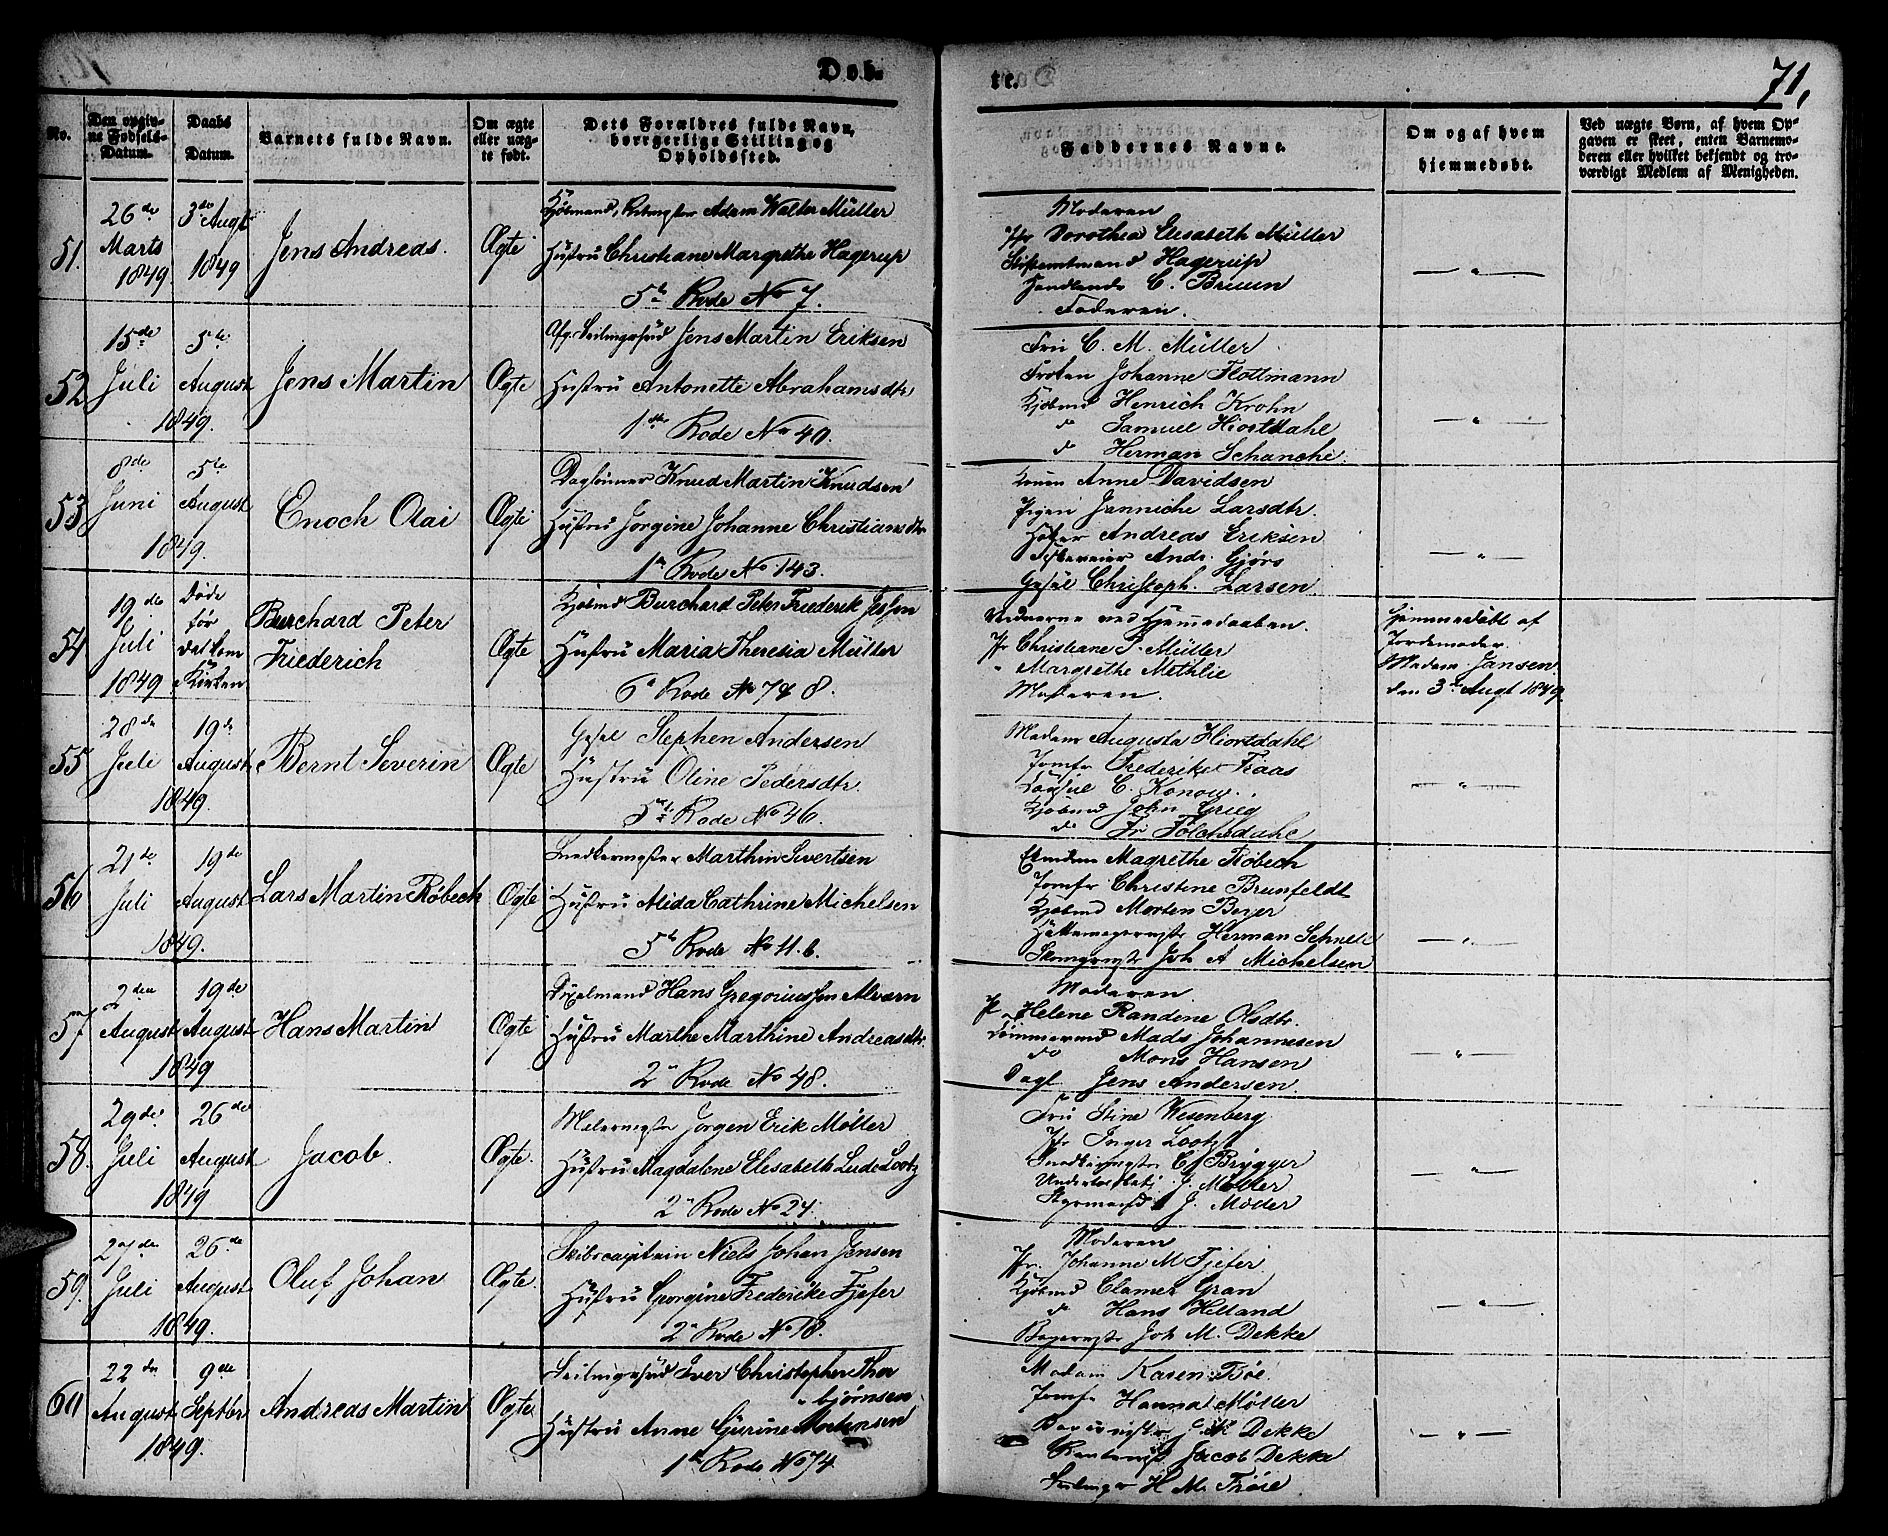 Døb-
te.
71,
No.
Den opgiv-
ne Fødsels-
Datum.
Daabs
Datum.
Varnets fulde Navn.
Om ægte
eller uæg-
te født.
Dets Forældres fulde Navn,
borgerlige Stilling og
Opholdssted.
Faddernes Navne.
Om og af hvem
hjemmedøbt.
Ved uægte Børn, af hvem Op-
gaven er skeet, enten Barnemo-
deren eller hvilket bekjendt og tro-
værdigt Medlem af Menigheden.
51.
26de
Marts
1849.
3de Augt
1849
Jens Andreas.
Ægte
Kjøbmand, Adam Walter Müller
Hustru Christiane Margrethe Hagerup
5te Rode No 7.
Moderen
Jfr Dorothea Elisabeth Müller
Stiftamtmand Hagerup
C. Bruun
Faderen.
— " —
52
15de
Juli
5te
August
1849.
Jens Martin
Ægte
Jens Martin Eriksen
Hustru Antonette Abrahamsdtr
1ste Rode No 40.
Fru C. M. Müller
Frøken Johanne Flottmann
Kjøbmd Henrich Krohn
do Samuel Hiortdahl
do Herman Schanche
— " —
53
8de
Juni
5te
August
1849.
Enoch Olai
Ægte
Daglønner Knud Martin Knudsen
Hustru Jorgine Johanne Christiansdtr
1te Rode No 143.
Konen Anne Davidsen
Pigen Janniche Larsdtr.
Andreas Eriksen
Andr. Gjørs
Gesel Christoph. Larsen
— " —
54
19de
Juli
1849
Døde
før
det kom
Kirken
Burchard Peter
Friederich
Ægte
Kjøbmd Burchard Peter Friederik Jessen
Hustru Maria Theresia Müller
6te Rode No 7 & 8.
Vidnerne ved Hjemmedaaben.
Jfr Christiane P. Müller
" Margrethe Methlie
Moderen.
Hjemmedøbt af
Jordemoder
Madam Jansen
den 3de Augt 1849.
55
28de
Juli
19de
August
1849.
Bernt Severin
Ægte
Gesel Stephen Andersen
Hustru Oline Pedersdtr.
5te Rode No 46.
Madam Augusta Hiortdahl
Jomfr Frederikke Traas
Consul C. Konow.
Kjøbmd John Grieg
do Fr Tolchsdahl
— " —
56
21de
Juli
19de
August
1849.
Lars Martin Røbech
Ægte
Snedkermester Marthin Sivertsen
Hustru Alida Cathrine Michelsen
5te Rode No 11.b.
Magrethe Røbech
Jomfr Christine Brunfeldt
Kjøbmd Morten Beyer
Hattemagermstr Herman Schnell
Skomgrmstr Joh A Michelsen
— " —
57
2den
August
19de
August
1849
Hans Martin
Ægte
Hans Gregoriussen Alværn
Hustru Marthe Marthine Andreasdtr.
2en Rode No 48.
Moderen
P. Helene Randine Olsdtr.
Tømmermd Mads Johannesen
do Mons Hansen
Dagl Jens Andersen.
— " —
58.
29de
Juli
26de
August
1849
Jacob.
Ægte.
Malermstr Jørgen Erik Møller
Hustru Magdalene Elisabeth Lude Lootz
2en Rode No 24.
Fru Stine Wesenberg
Jfr Inger Lootz
Snedkermstr C. Brygger
J. Møller
Styrmand J. Møller
— " —
59.
27de
Juli
26de
August
1849.
Oluf Johan
Ægte.
Skibscapitain Niels Johan Jensen
Hustru Georgine Frederikke Fjeser
2en Rode No 18.
Moderen
Jfr. Johanne M Fjeser
Kjøbmd Clamer Gran
do Hans Helland
Bagermstr Joh M. Dekke
— " —
60
22de
August
9de
Septbr
1849.
Andreas Martin
Ægte.
Iver Christopher Thor
bjørnsen
Hustru Anne Gurine Mortensen
1te Rode No 74
Madam Karen Bøe.
Jomfr Hanna Møller
J. M Dekke
Jacob Dekke
H M. Trøse
— " —